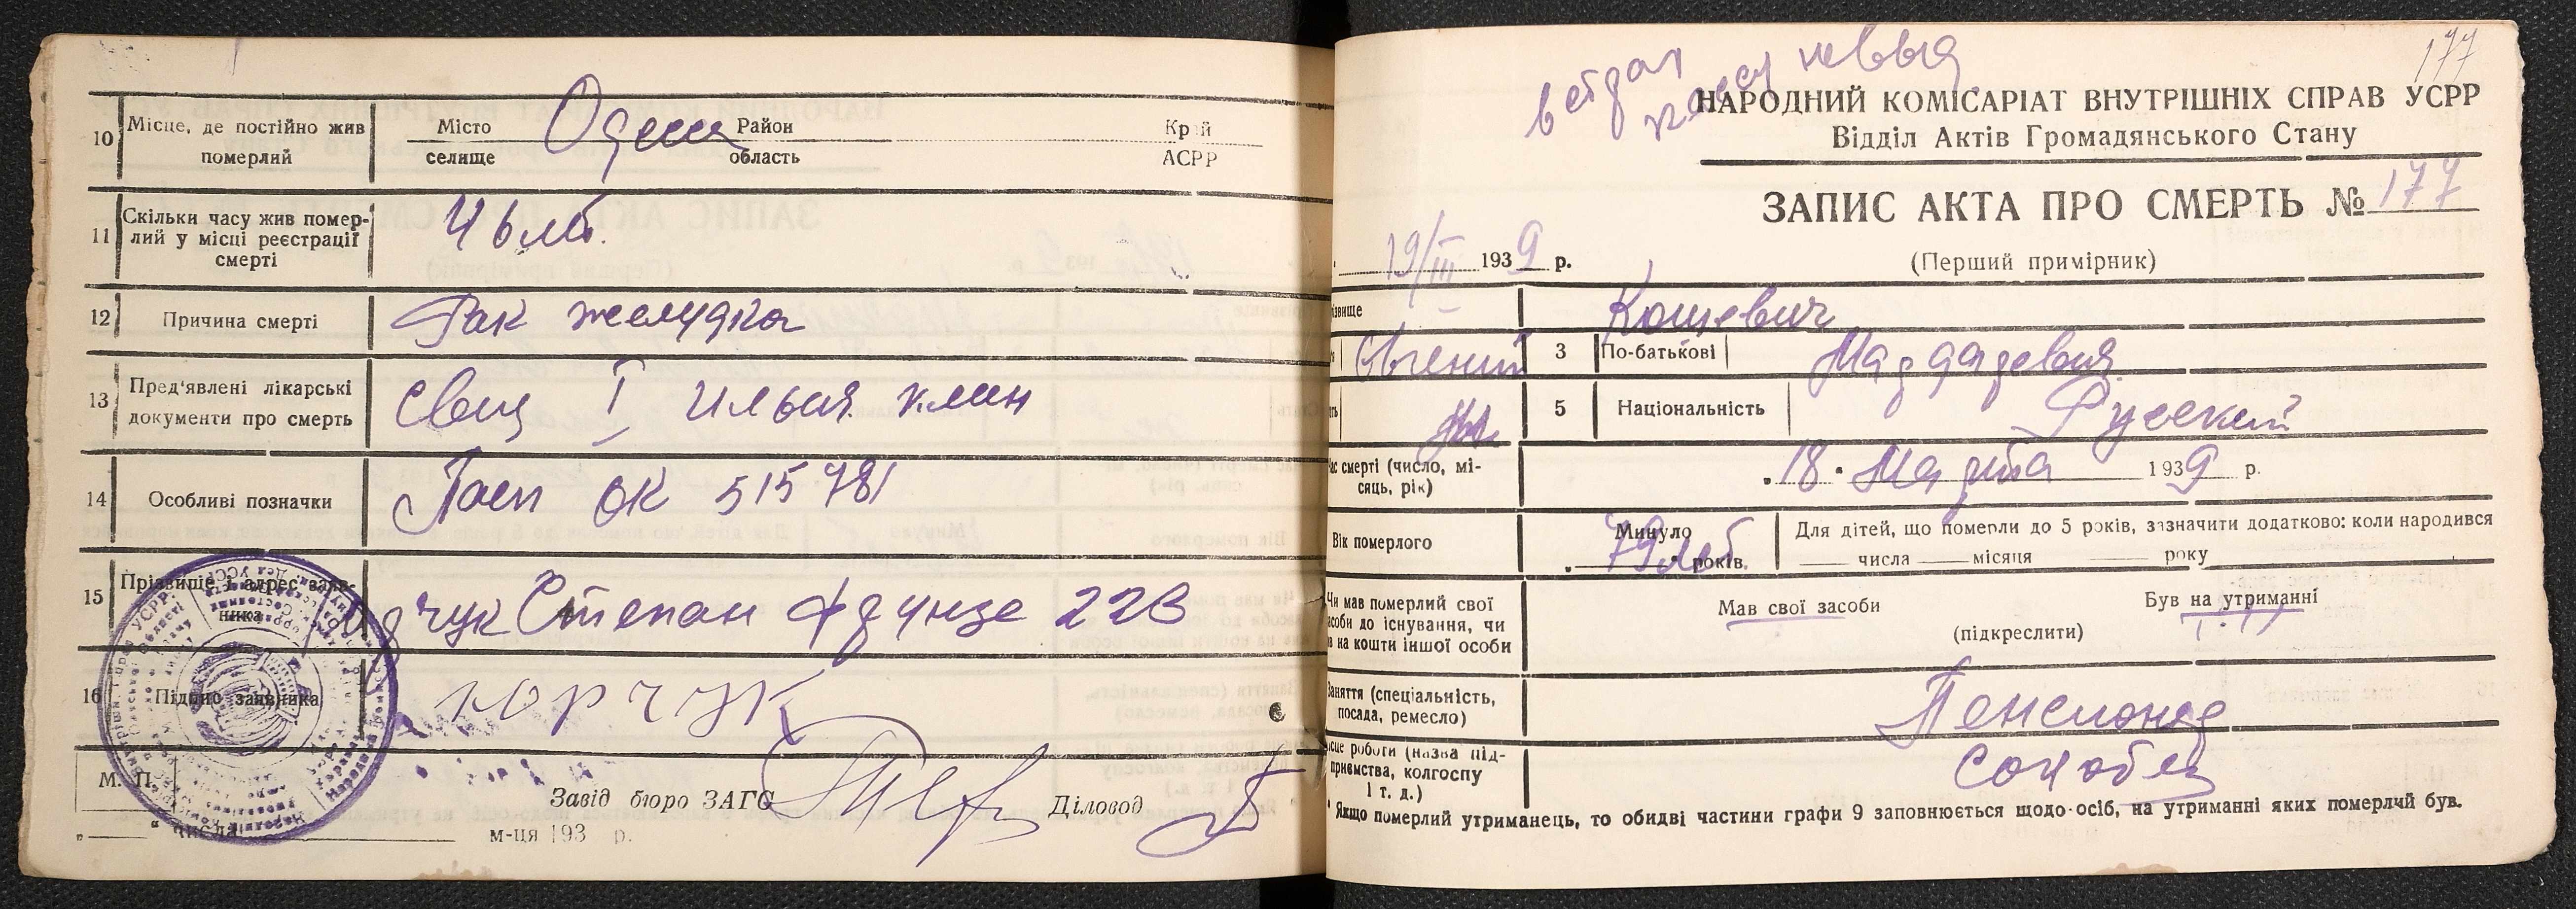 10 Місце, де постійно жив померлий
Місто селище Одесса Район область Край АСРР
11 Скільки часу жив померлий у місці реєстрації смерті
12 Причина смерті Рак желудка
13 Пред'явлені лікарські документи про смерть
14 Особливі позначки Посп ОК 515781
15 Прізвище і адрес заявника Юрчук Степан Фрунзе 223
16 Підпис заявника Юрчук
М. П.
Завід бюро ЗАГС Діловод
" числа м-ця 193 р.
177
НАРОДНИЙ КОМІСАРІАТ ВНУТРІШНІХ СПРАВ УСРР
Відділ Актів Громадянського Стану
ЗАПИС АКТА ПРО СМЕРТЬ № 177
19/III 1939 р.
(Перший примірник)
ізвище Кошевич
Евгений 3 По-батькові
5 Національність Русский
ас смерті (число, місяць, рік) „18" Марта 1939 р.
Вік померлого Минуло 79 лет років.
Для дітей, що померли до 5 років, зазначити додатково: коли народився
числа місяця року
Чи мав померлий свої
асоби до існування, чи
в на кошти іншої особи
Мав свої засоби Був на утриманні
(підкреслити)
Заняття (спеціальність, посада, ремесло) Пенсионер
ісце роботи (назва підприємства, колгоспу і т. д.)
* Якщо померлий утриманець, то обидві частини графи 9 заповнюється щодо осіб, на утриманні яких померлий був.